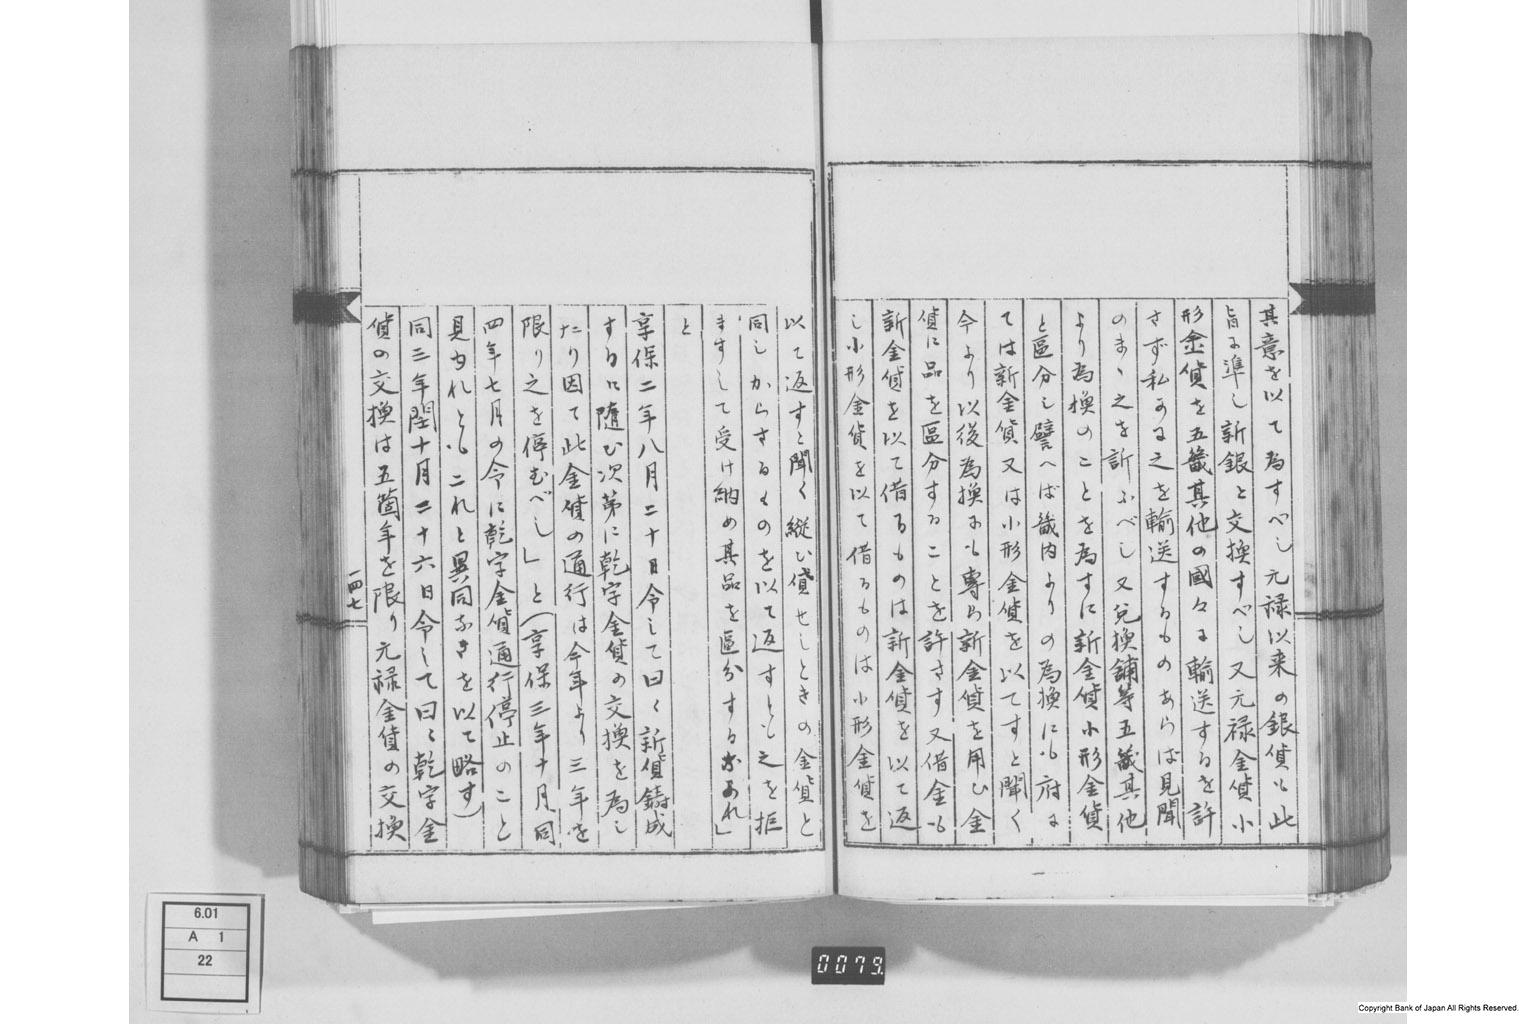 其意を以て為すべし元禄以来の銀貨も此
旨に準し新銀と交換すべし又元禄金貨小
形金貨を五畿其他の國々に輸送するを許
さず私かに之を輸送するものあらば見聞
のまゝ之を訴ふべし又兌換舗等五畿其他
より為換のことを為すに新金貨小形金貨
と區分し譬へば畿内よりの為換にも府に
ては新金貨又は小形金貨を以てすと聞く
今より以後為換にも專ら新金貨を用ひ金
貨に品を區分することを許さす又借金も
新金貨を以て借るものは新金貨を以て返
し小形金貨を以て借るものは小形金貨を
以て返すと聞く縦ひ貸せしときの金貨と
同しからさるものを以て返すとも之を拒
ますして受け納め其品を區分するなかれ」
と
享保二年八月二十日令して曰く新貨鋳成
するに隨ひ次第に乾字金貨の交換を為し
たり因て此金貨の通行は今年より三年を
限り之を停むべし」と(享保三年十月同
四年七月の令に乾字金貨通行停止のこと
見ゆれともこれと異同なきを以て略す)
同三年閏十月二十六日令して曰く乾字金
貨の交換は五箇年を限り元禄金貨の交換
一四七
6.01
A 1
22
0079
Copyright Bank of Japan All Rights Reserved.